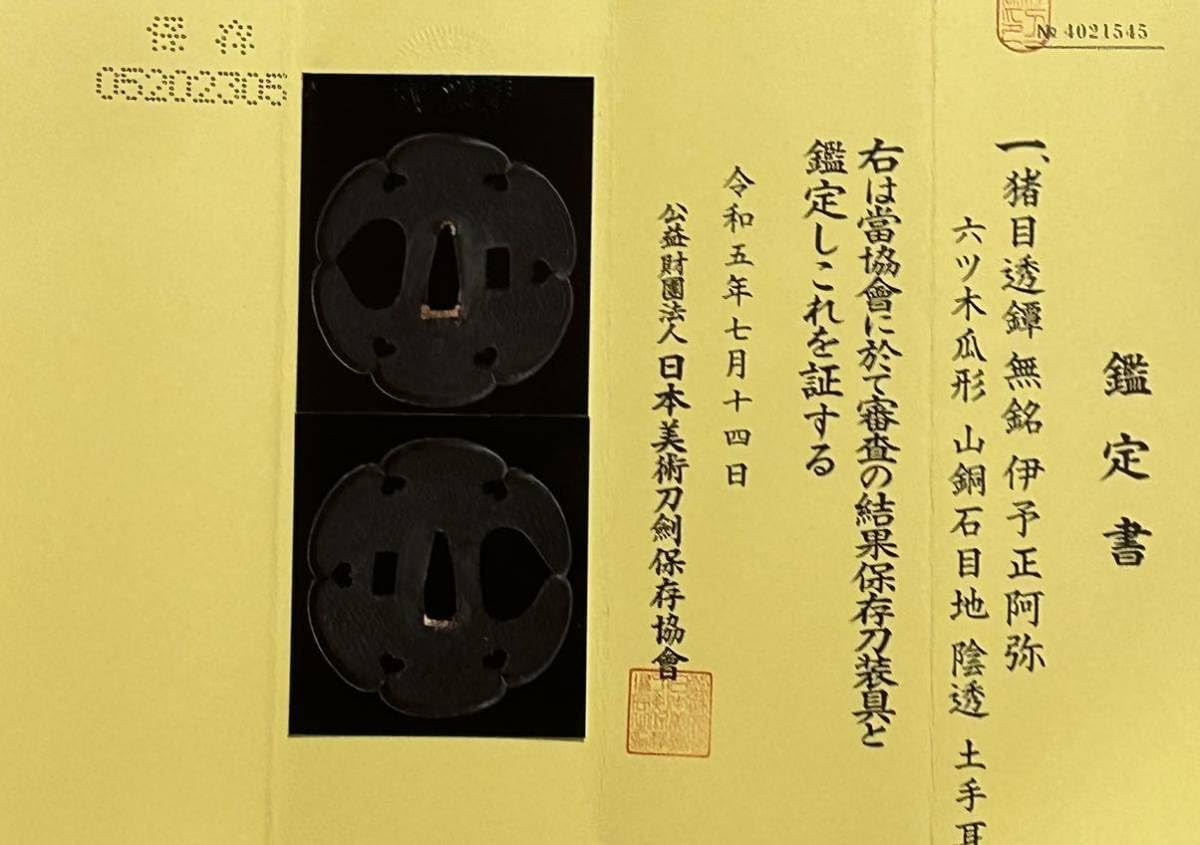 № 4021545
鑑定書
一、猪目透鐔 無銘 伊予正阿弥
六ツ木瓜形 山銅石目地 陰透 土手耳
右は當協會に於て審査の結果保存刀装具と
鑑定しこれを証する
令和五年七月十四日
公益財團法人 日本美術刀劍保存協會
保存
05202305